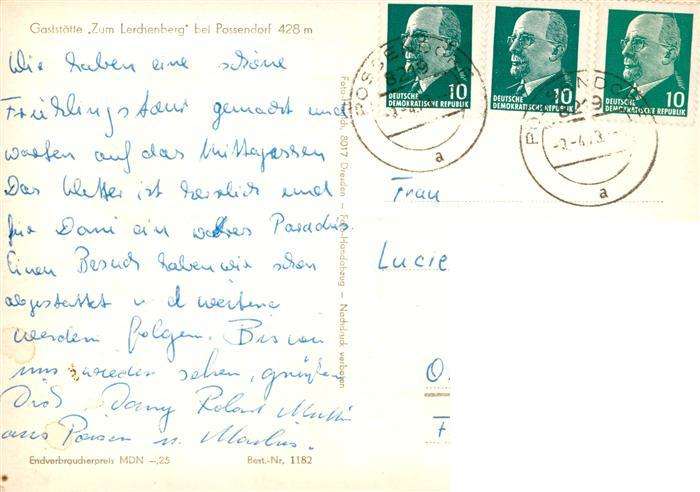 Gaststätte „Zum Lerchenberg" bei Possendorf 428 m
Wir haben eine schöne
Frühlingstour gemacht und
warten auf das Mittagessen
Das Wetter ist herrlich und
für Dani ein wahres Paradies.
Einen Besuch haben wir schon
abgestattet u d weitere
werden folgen. Bis wir
uns wieder sehen, grüßen
Dich Roland Mutti
aus u.
Endverbraucherpreis MDN –,25 Best.-Nr. 1182
8017 Dresden – Foto-Handabzug – Nachdruck verboten
10
DEUTSCHE
DEMOKRATISCHE REPUBLIK
10
DEUTSCHE
DEMOKRATISCHE REPUBLIK
10
DEUTSCHE
DEMOKRATISCHE REPUBLIK
8219
a
8219
a
Frau
Lucie
O.
F